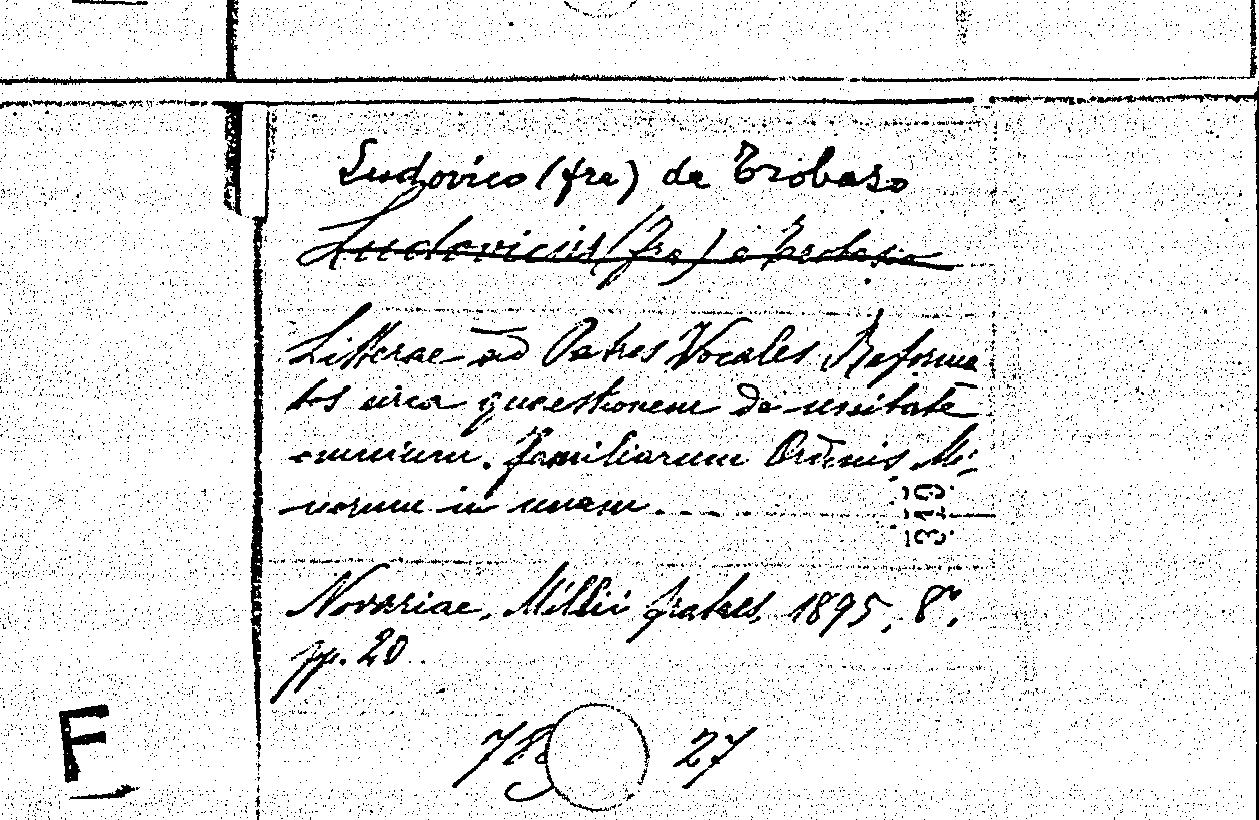 Ludovico (fra) da Trobaso
Ludovicus (fra) a Trobaso
Litterae ad Patres Vocales Reforma
tos circa quaestionem de unitate
omnium familiarum Ordinis Mi-
norum in unam.
319
Novariae, Millii fratres, 1895, 8°,
pp. 20
78 27
E